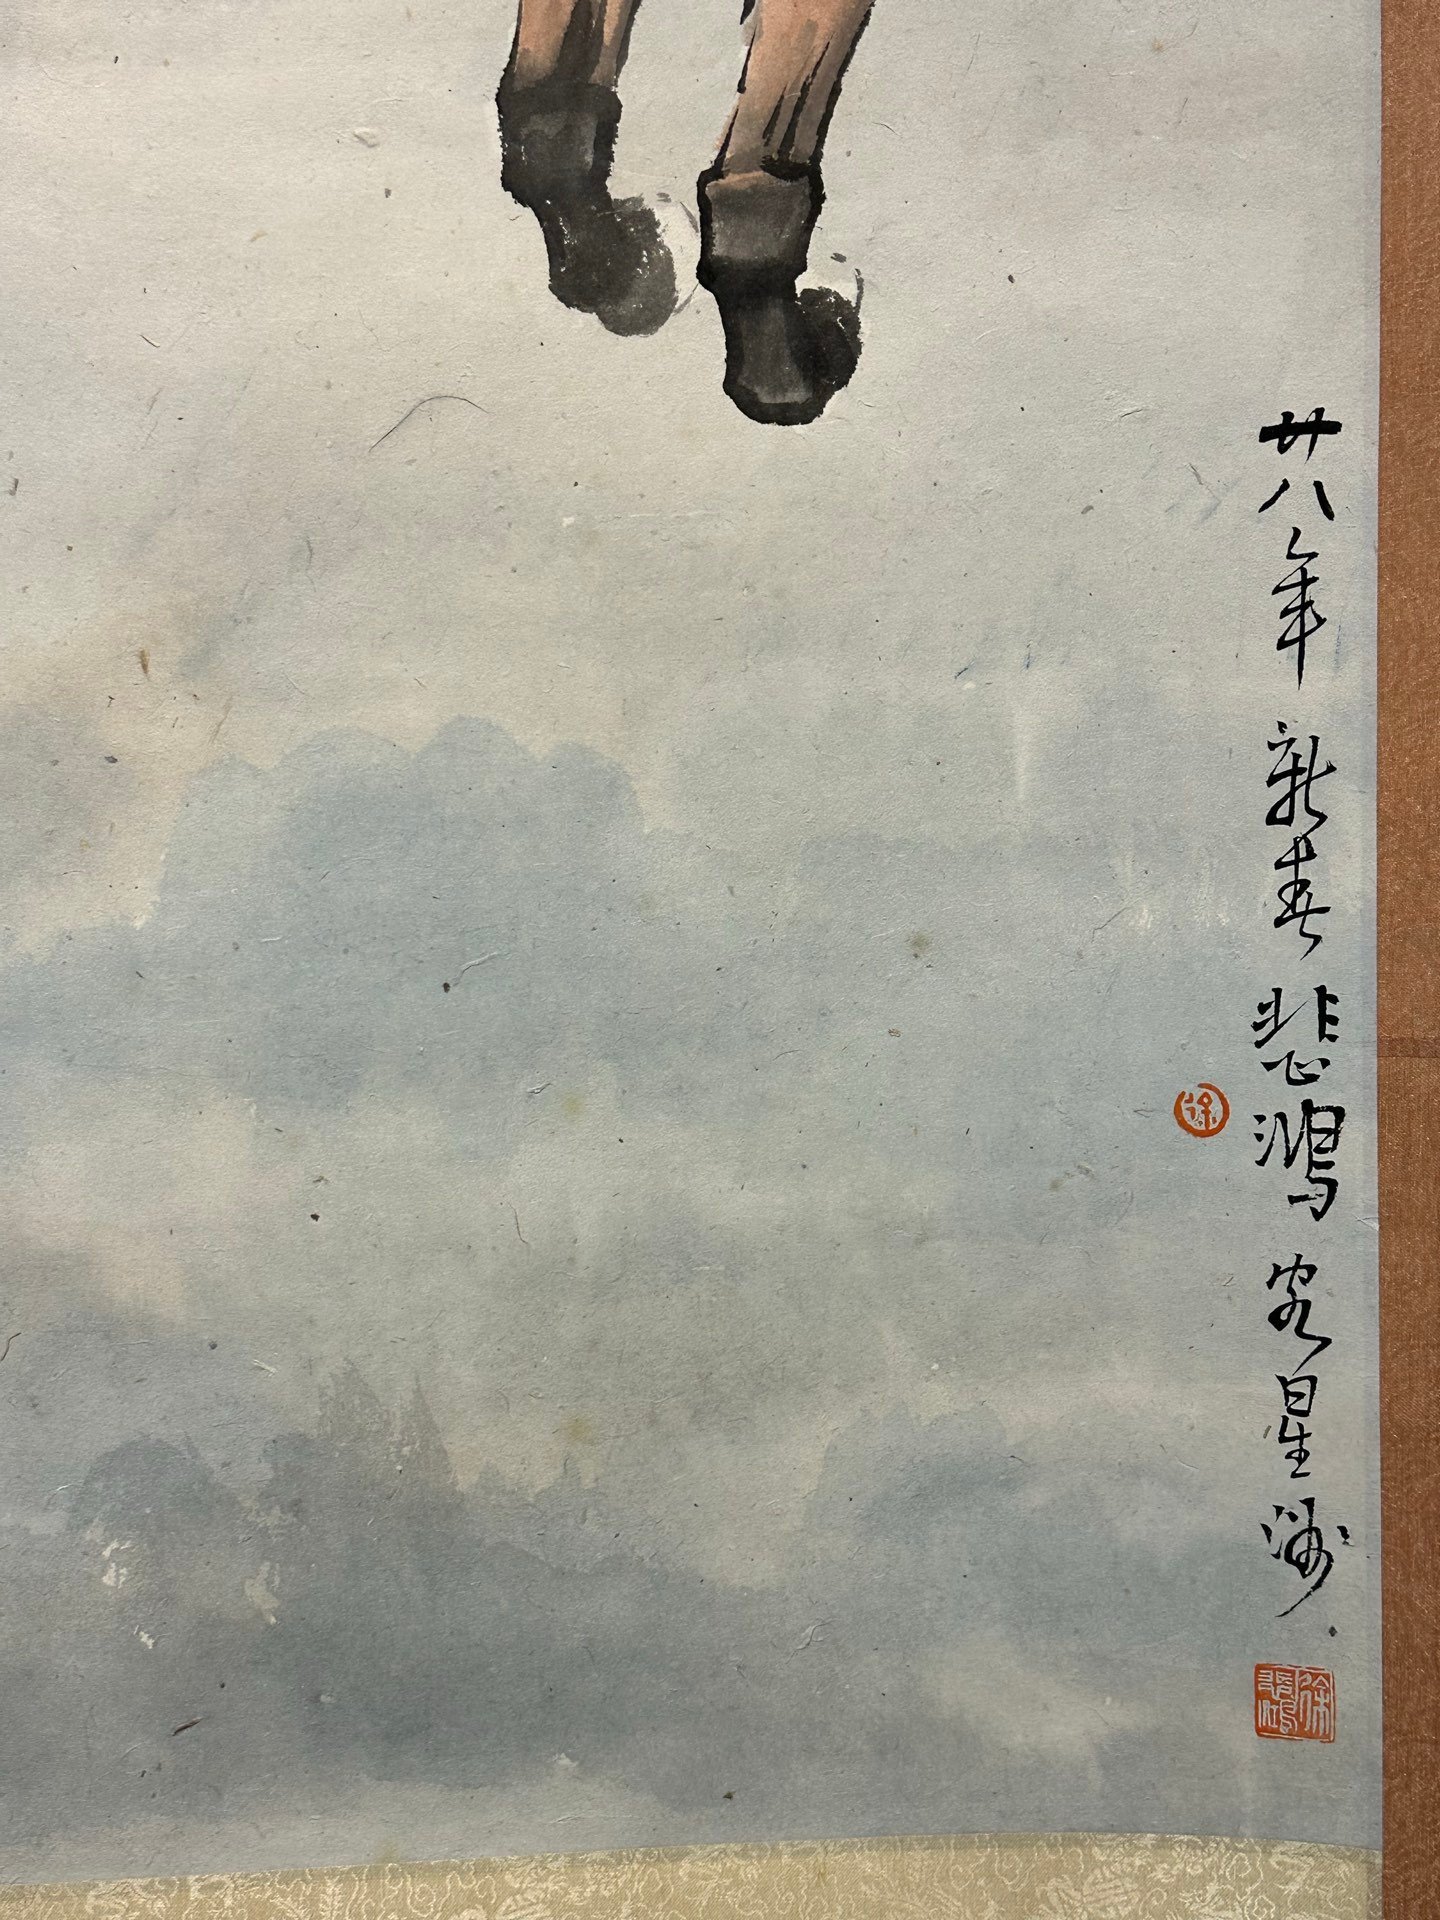 廿八年新春悲鴻客星洲
徐
徐悲鴻